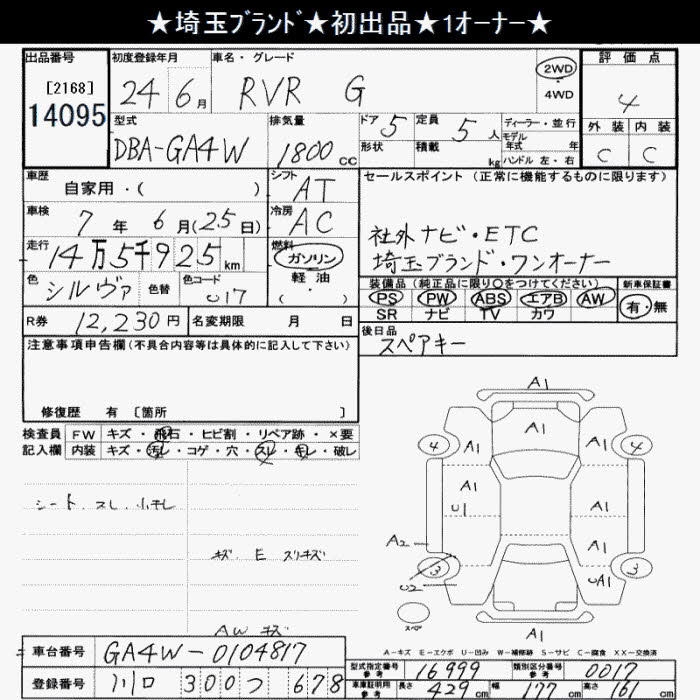 ★埼玉ﾌﾞﾗﾝﾄﾞ★初出品★1オーナー★
出品番号
[2168]
14095
初度登録年月
24 6月
車名・グレード
RVR G
2WD
・
4WD
評価点
4
外装 内装
C C
型式
DBA-GA4W
排気量
1800 CC
ドア 5
形状
定員 5 人
積載 kg
ディーラー・並行
モデル年式 年
ハンドル 左・右
車歴
自家用・( )
シフト
AT
車検
7年 6月(25日)
冷房
AC
走行
14万5千925km
燃料
ガソリン
・
軽油
・( )
色
シルヴァ
色替
色コード
U17
R券
12,230円
名変期限 月 日
セールスポイント (正常に機能するものに限ります)
社外ナビ・ETC
埼玉ブランド・ワンオーナー
装備品(純正品に限り〇をつけてください)
新車保証書
PS PW ABS エアB AW
SR ナビ TV カワ
有・無
後日品
スペアキー
注意事項申告欄(不具合内容等は具体的に記入して下さい)
修復歴 有 [箇所 ]
検査員
記入欄
FW キズ・飛石・ヒビ割・リペア跡・×要
内装 キズ・汚レ・コゲ・穴・スレ・キレ・破レ
シート.スレ.
キズ E スリキズ
AW キズ
A1
A1
4 A1 A1 4
A1 A1
U1
A2 A1
3 UA1 3
U2
スペア
A1
A-キズ E-エクボ U-凹み W-補修跡 S-サビ C-腐食 XX-交換済
車台番号
GA4W-0104817
登録番号
川口 300つ 678
型式指定番号
参考
16999
類別区分番号
参考
0017
車庫証明用
参考
長さ 429cm 幅 177cm 高さ 161cm